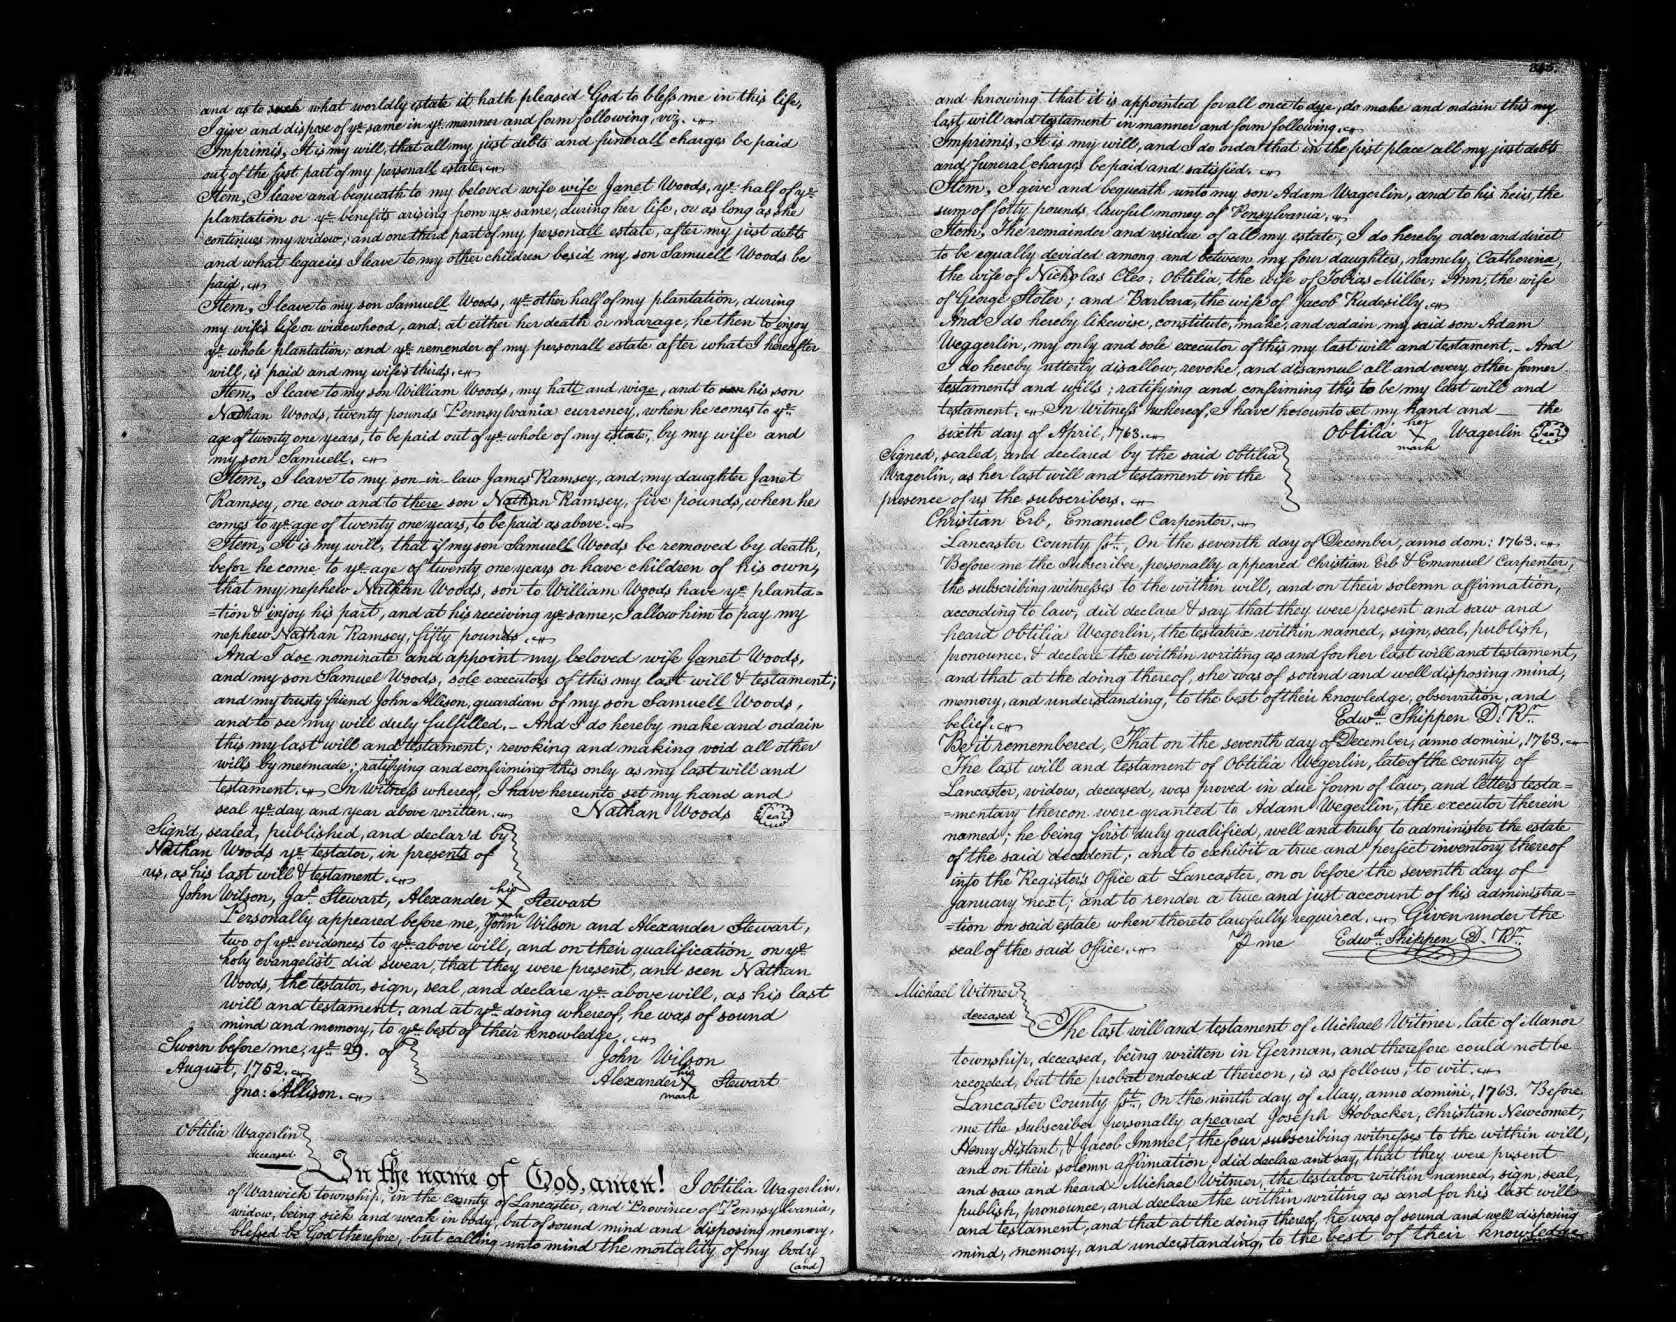 and as to such what worldly estate it hath pleased God to bless me in this life,
I give and dispose of ye same in ye manner and form following, viz.
Imprimis, It is my will, that all my just debts and funerall charges be paid
out of the first part of my personall estate.
Item, I leave and bequeath to my beloved wife wife Janet Woods, ye half of ye
plantation or ye benefits arising from ye same, during her life, or as long as she
continues my widow; and one third part of my personall estate, after my just debts
and what legacies I leave to my other children besid my son Samuell Woods be
paid.
Item, I leave to my son Samuell Woods, ye other half of my plantation, during
my wifes life or widowhood, and, at either her death or marage, he then to enjoy
ye whole plantation; and ye remender of my personall estate after what I hereafter
will, is paid and my wifes thirds.
Item, I leave to my son William Woods, my hatt and wige, and to son his son
Nathan Woods, twenty pounds Pennsylvania currency, when he comes to ye
age of twenty one years, to be paid out of ye whole of my estate, by my wife and
my son Samuell.
Item, I leave to my son-in-law James Ramsey, and my daughter Janet
Ramsey, one cow and to there son Nathan Ramsey, five pounds, when he
comes to ye age of twenty one years, to be paid as above.
Item, It is my will, that if my son Samuell Woods be removed by death,
befor he come to ye age of twenty one years or have children of his own,
that my nephew Nathan Woods, son to William Woods have ye planta=
=tion & injoy his part, and at his receiving ye same, I allow him to pay my
nephew Nathan Ramsey, fifty pounds.
And I doe nominate and appoint my beloved wife Janet Woods,
and my son Samuel Woods, sole executors of this my last will & testament;
and my trusty friend John Allison, guardian of my son Samuell Woods,
and to see my will duly fulfilled,- And I do hereby make and ordain
this my last will and testament; revoking and making void all other
wills by me made; ratifying and confirming this only as my last will and
testament. In Witness whereof, I have hereunto set my hand and
seal ye day and year above written. Nathan Woods Seal
Sign'd, sealed, published, and declar'd by
Nathan Woods ye testator, in presents of
us, as his last will & testament.
his
John Wilson, Jas. Stewart, Alexander X Stewart
mark
Personally appeared before me, John Wilson and Alexander Stewart,
two of ye evidences to ye above will, and on their qualification on ye
holy evangelist did swear, that they were present, and seen Nathan
Woods, the testator, sign, seal, and declare ye above will, as his last
will and testament, and at ye doing whereof, he was of sound
mind and memory, to ye best of their knowledge.
Sworn before me, ye 29. of John Wilson
August, 1752. his
Alexander X Stewart
Jno: Allison. mark
Obtilia Wagerlin
deceased
In the name of God, amen! I Obtilia Wagerlin,
of Warwick township, in the county of Lancaster, and Province of Pennsylvania,
widow, being sick and weak in body, but of sound mind and disposing memory,
blessed be God therefore, but calling unto mind the mortality of my body
(and)
345.
and knowing that it is appointed for all once to dye, do make and ordain this my
last will and testament in manner and form following.
Imprimis, It is my will, and I do order that in the first place all my just debts
and funeral charges be paid and satisfied.
Item, I give and bequeath unto my son Adam Wagerlin, and to his heirs, the
sum of forty pounds lawful money of Pensylvania.
Item, The remainder and residue of all my estate, I do hereby order and direct
to be equally devided among and between my four daughters, namely, Catherina,
the wife of Nicholas Cleo; Obtilia, the wife of Tobias Miller; Ann, the wife
of George Stoler; and Barbara, the wife of Jacob Rudesilly.
And I do hereby likewise, constitute, make, and ordain my said son Adam
Weggerlin, my only and sole executor of this my last will and testament,- And
I do hereby utterly disallow, revoke, and disannul all and every other former
testaments and wills; ratifying and confirming this to be my last will and
testament. In Witness whereof, I have hereunto set my hand and — the
sixth day of April, 1763. Obtilia her X mark Wagerlin Seal
Signed, sealed, and declared by the said Obtilia
Wagerlin, as her last will and testament in the
presence of us the subscribers.
Christian Erb, Emanuel Carpenter.
Lancaster County Sst., On the seventh day of December, anno dom: 1763.
Before me the Subscriber, personally appeared Christian Erb & Emanuel Carpenter,
the subscribing witnesses to the within will, and on their solemn affirmation,
according to law, did declare & say that they were present and saw and
heard Obtilia Wegerlin, the testatrix within named, sign, seal, publish,
pronounce, & declare the within writing as and for her last will and testament,
and that at the doing thereof, she was of sound and well disposing mind,
memory, and understanding, to the best of their knowledge, observation, and
belief. Edwd. Shippen D. Rr.
Be it remembered, That on the seventh day of December, anno domini, 1763.
The last will and testament of Obtilia Wegerlin, late of the county of
Lancaster, widow, deceased, was proved in due form of law, and letters testa=
=mentary thereon were granted to Adam Wegerlin, the executor therein
named; he being first duly qualified, well and truly to administer the estate
of the said decedent; and to exhibit a true and perfect inventory thereof
into the Register's Office at Lancaster, on or before the seventh day of
January next; and to render a true and just account of his administra=
=tion on said estate when thereto lawfully required. Given under the
seal of the said Office. P me Edwd. Shippen D. Rr.
Michael Witmer
deceased
The last will and testament of Michael Witmer, late of Manor
township, deceased, being written in German, and therefore could not be
recorded, but the probat endorsed thereon, is as follows, to wit.
Lancaster County Sst., On the ninth day of May, anno domini, 1763. Before
me the Subscriber personally apeared Joseph Hobacker, Christian Newcomet,
Henry Histant, & Jacob Immel, the four subscribing witnesses to the within will,
and on their solemn affirmation, did declare and say, that they were present
and saw and heard Michael Witmer, the testator within named, sign, seal,
publish, pronounce, and declare the within writing as and for his last will
and testament, and that at the doing thereof, he was of sound and well disposing
mind, memory, and understanding, to the best of their knowledge